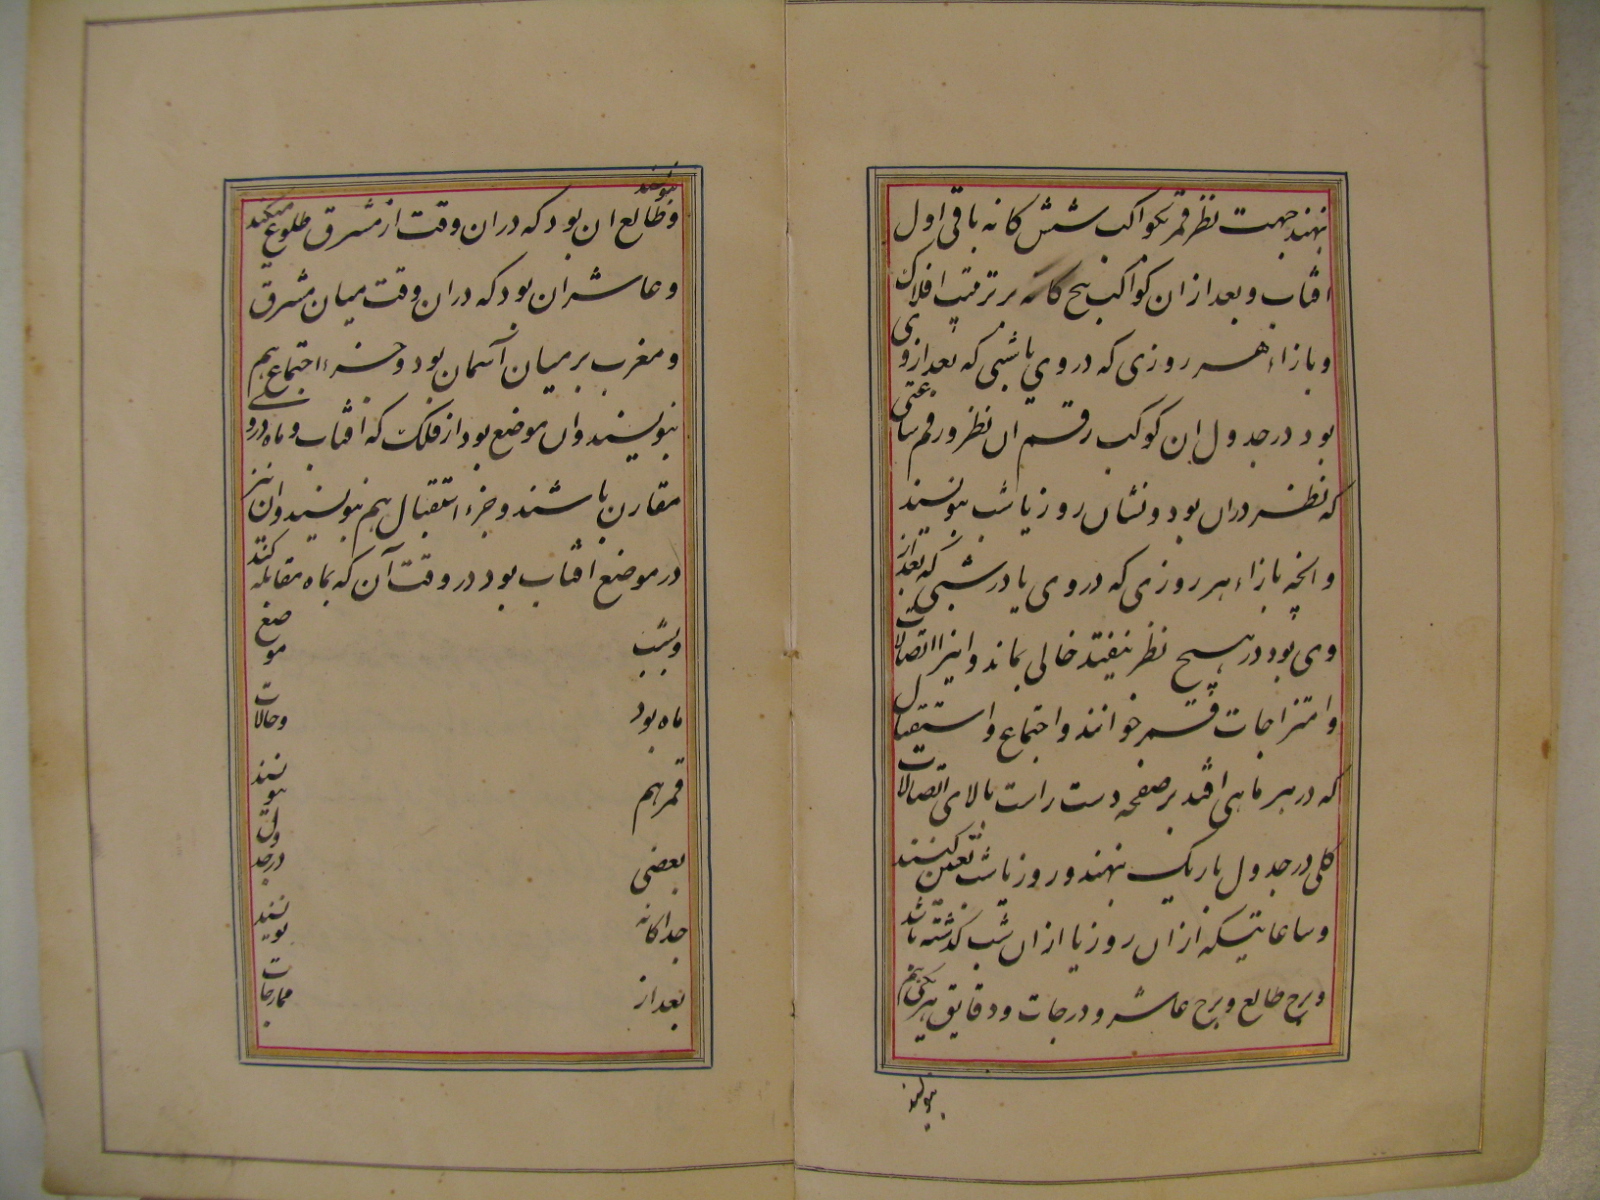 نهند جهت نظر قمر بکواکب ششکانه باقی اول
افتاب و بعد ازان کواکب پنج کانه بر ترتیب افلاک
و بازاء هر روزی که در وی یا شبی که بعد از وی
بود در جدول ان کوکب رقم ان نظر و رقم ساعتی
که نظر دران بود و نشان روز یا شب بنویسند
و انچه بازاء هر روزی که در وی یا در شبی که بعد از
وی بود در هیچ نظر نیفتد خالی بماند و اینرا اتصالات
و امتزاجات قمر خوانند و اجتماع و استقبال
که در هر ماهی افتد بر صفحه دست راست بالای اتصالات
کلی در جدول باریک بنهند و روز یا شب تعیین کنند
و ساعاتیکه از ان روز یا از ان شب گذشته باشد
و برج طالع و برج عاشر و درجات و دقایق هر یکی هم
بنویسند
بنویسند
و طالع ان بود که دران وقت از مشرق طلوع میکند
و عاشر ان بود که دران وقت میان مشرق
و مغرب بر میان آسمان بود و جزء اجتماع هم
بنویسند وان موضع بود از فلک که افتاب و ماه درو
مقارن باشند و جزء استقبال هم بنویسند وان نیز
در موضع افتاب بود در وقت آن که بماه مقابله کند
وبشب موضع
ماه بود وحالات
قمر هم بنویسند
بعضی در جدول
جداکانه نویسند
بعد از ممازجات